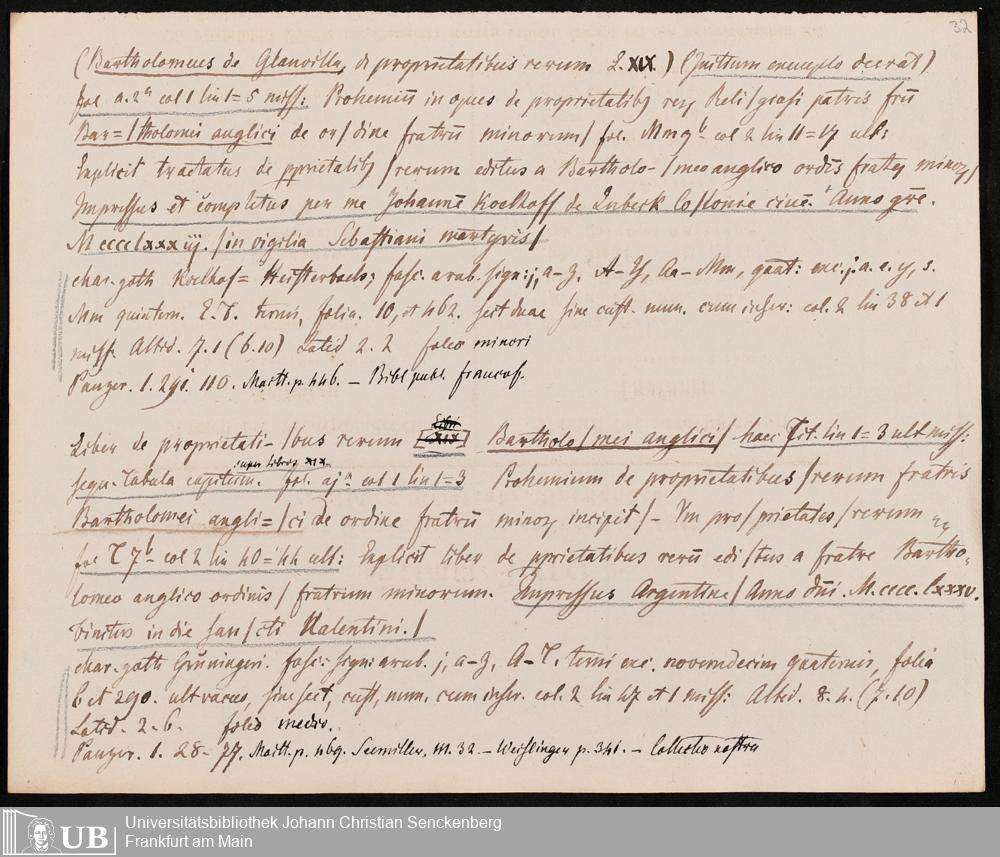 32
(Bartholomeus de Glanvilla, de proprietatibus rerum L. XIX.) (Initium exemplo deerat)
fol a. 2ª col 1 lin 1=5 miss: Prohemiū in opus de proprietatibȝ reȝ Reli/giosi patris frīs
Bar=/tholomei anglici de or/dine fratrū minorum/ fol. Mm 9b col 2 lin 11=17 ult:
Explicit tractatus de pprietatibȝ/rerum editus a Bartholo-/meo anglico ordīs fratrȝ minoȝ/
Impressus et completus per me Johannē Koelhoff de Lubeck Co/lonie ciuē. Anno grē.
M cccc lxxx iij. /in vigilia Sebastiani martyris/
char. goth Koelhof= Heisterbach; fasc. arab. sign: j, a-z, A-Y, Aa-Mm, quat: exc. j. a. e. y, s.
Mm quintern. E. T. ternis, folia. 10, et 462. sect duae sine cust. num. cum inscr: col. 2 lin 38 et 1
miss. Altid. 7. 1 (6. 10) Latid 2. 2 folio minori
Panzer. 1. 291. 110. Maitt. p. 446. - Bibl publ. francof.
Liber de proprietati-/bus rerum Bartholo/mei anglici/ haec Tit. lin 1=3 ult miss:
super Libros XIX.
sequ. Tabula capitum. fol. aj ª col 1 lin 1=3 Prohemium de proprietatibus/rerum fratris
Bartholomei angli=/ci de ordine fratrū minoȝ incipit/- Vm pro/prietates/rerum
fol T 7b col 2 lin 40=44 ult: Explicit liber de pprietatibus rerū edi/tus a fratre Bartho-
lomeo anglico ordinis/ fratrum minorum. Impressus Argentine/ Anno dñi. M. cccc. lxxxv.
Finitus in die san/cti Valentini./
char. goth Grüningeri. fasc: sign: arab. j, a-z, A-T. terni exc. novemdecim quaternis, folia
6 et 290. ult vacuo, sine sect, cust, num. cum inscr. col. 2 lin 47 et 1 miss: Altid. 8. 4. (7. 10)
Latid. 2. 6. folio medio.
Panzer. 1. 28. 77. Maitt. p. 469. Seemiller, III. 32. - Weislinger p. 341. - Collectio nostra
UB
Universitätsbibliothek Johann Christian Senckenberg
Frankfurt am Main